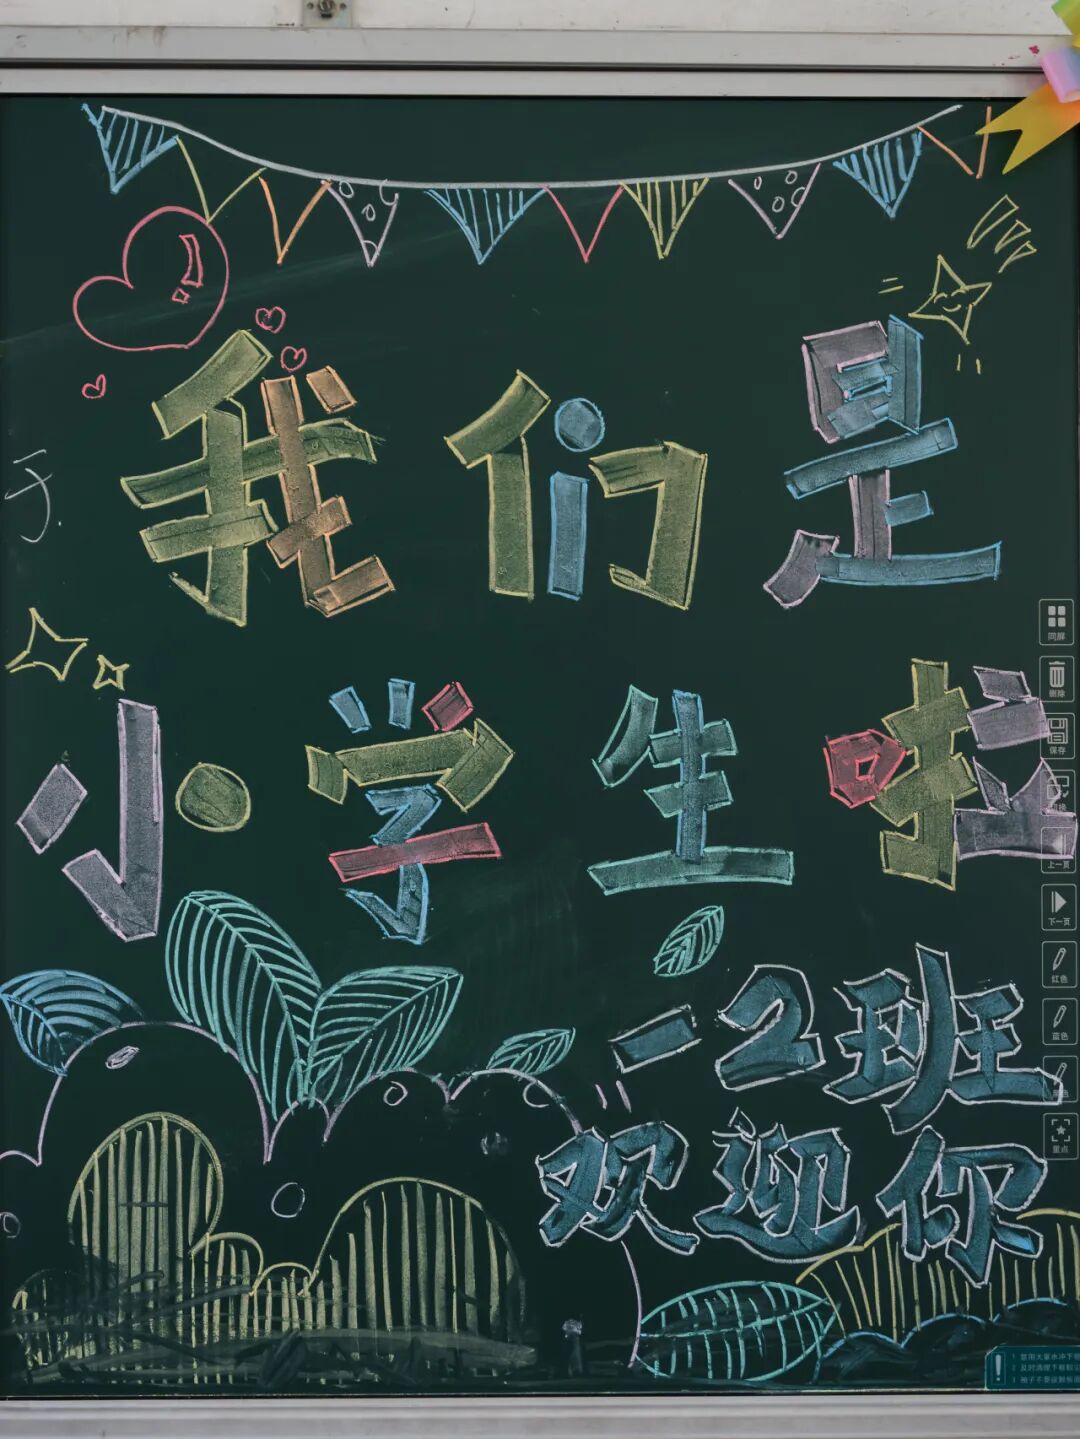 我们是
小学生啦
一2班
欢迎你
于
同屏
删除
保存
上一页
下一页
红色
蓝色
重点